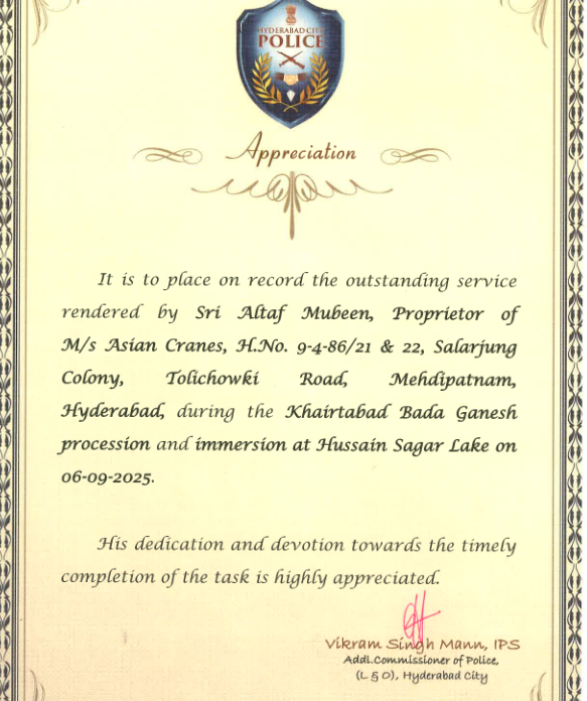 HYDERABAD CITY
POLICE
Appreciation
It is to place on record the outstanding service
rendered by Sri Altaf Mubeen, Proprietor of
M/s Asian Cranes, H.No. 9-4-86/21 & 22, Salarjung
Colony, Tolichowki Road, Mehdipatnam,
Hyderabad, during the Khairtabad Bada Ganesh
procession and immersion at Hussain Sagar Lake on
06-09-2025.
His dedication and devotion towards the timely
completion of the task is highly appreciated.
Vikram Singh Mann, IPS
Addl.Commissioner of Police,
(L & O), Hyderabad City